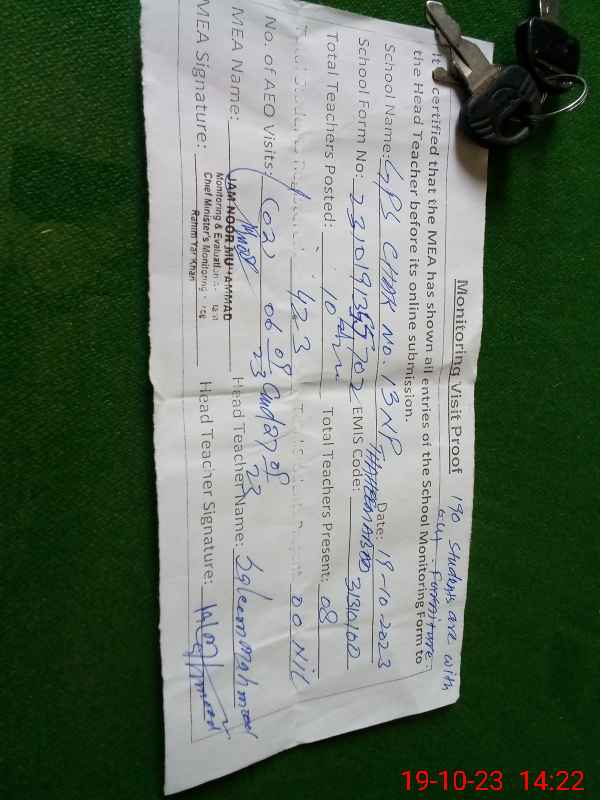 Monitoring Visit Proof
190 students are with
out furniture.
It certified that the MEA has shown all entries of the School Monitoring Form to
the Head Teacher before its online submission.
School Name: GPS CHAK NO. 13NP Date: 19-10-2023
School Form No: EMIS Code:
Total Teachers Posted: 10 Total Teachers Present: 08
423 00 NIL
No. of AEO Visits: (02) 06 09 23 and 27 09 23
MEA Name: JAM NOOR MUHAMMAD Head Teacher Name:
Monitoring & Evaluation
Chief Minister's Monitoring
Rahim Yar Khan
MEA Signature: Head Teacher Signature:
19-10-23 14:22